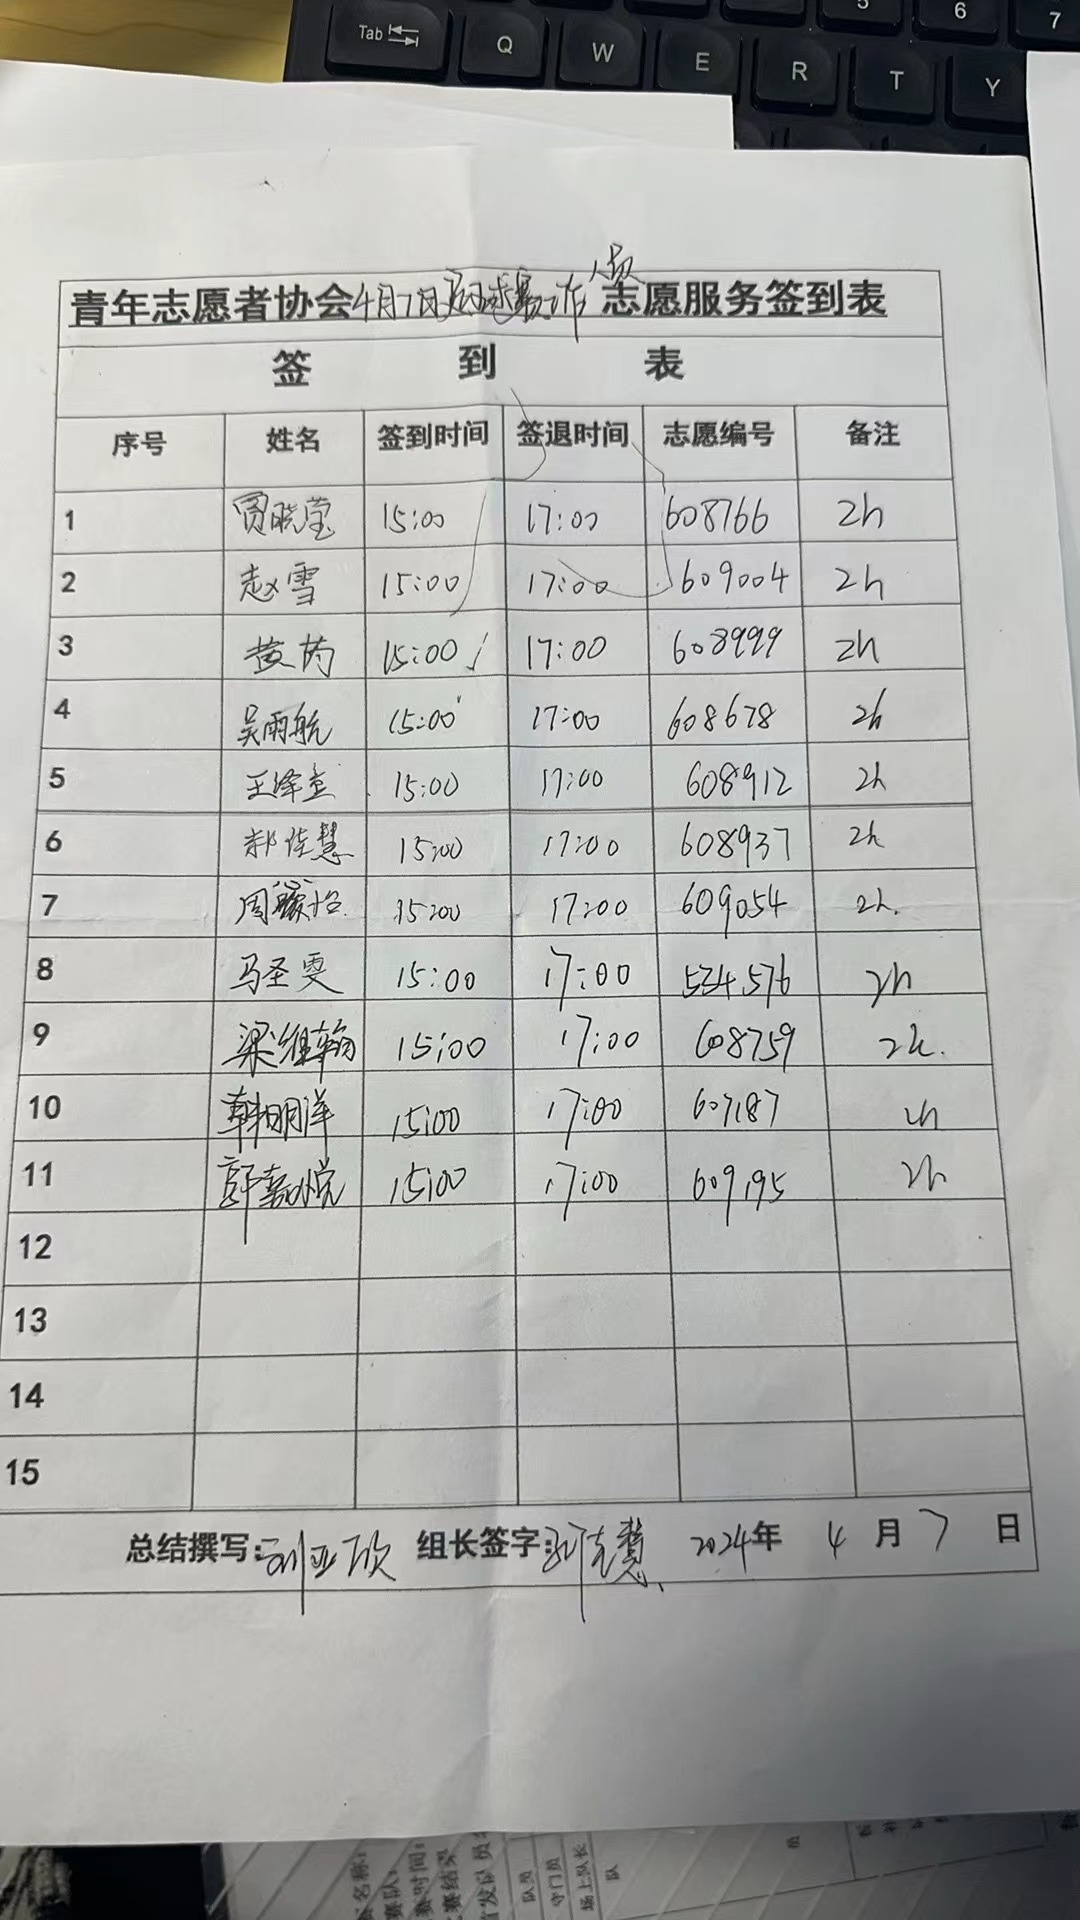 Tab Q W E R T Y 5 6 7
青年志愿者协会4月7日足球赛工作人员志愿服务签到表
签 到 表
序号 姓名 签到时间 签退时间 志愿编号 备注
1 贾晓莹 15:00 17:00 608766 2h
2 赵雪 15:00 17:00 609004 2h
3 黄芍 15:00 17:00 608999 2h
4 吴雨航 15:00 17:00 608678 2h
5 王泽萱 15:00 17:00 608912 2h
6 郝佳慧 15:00 17:00 608937 2h
7 周怡 15:00 17:00 609054 2h.
8 马圣雯 15:00 17:00 534576 2h
9 梁维翰 15:00 17:00 608759 2h.
10 韩明洋 15:00 17:00 607187 2h
11 郭嘉悦 15:00 17:00 609195 2h
12
13
14
15
总结撰写:刘亚欣 组长签字: 2024年 4月7日
队员
守门员
场上队长
队
员